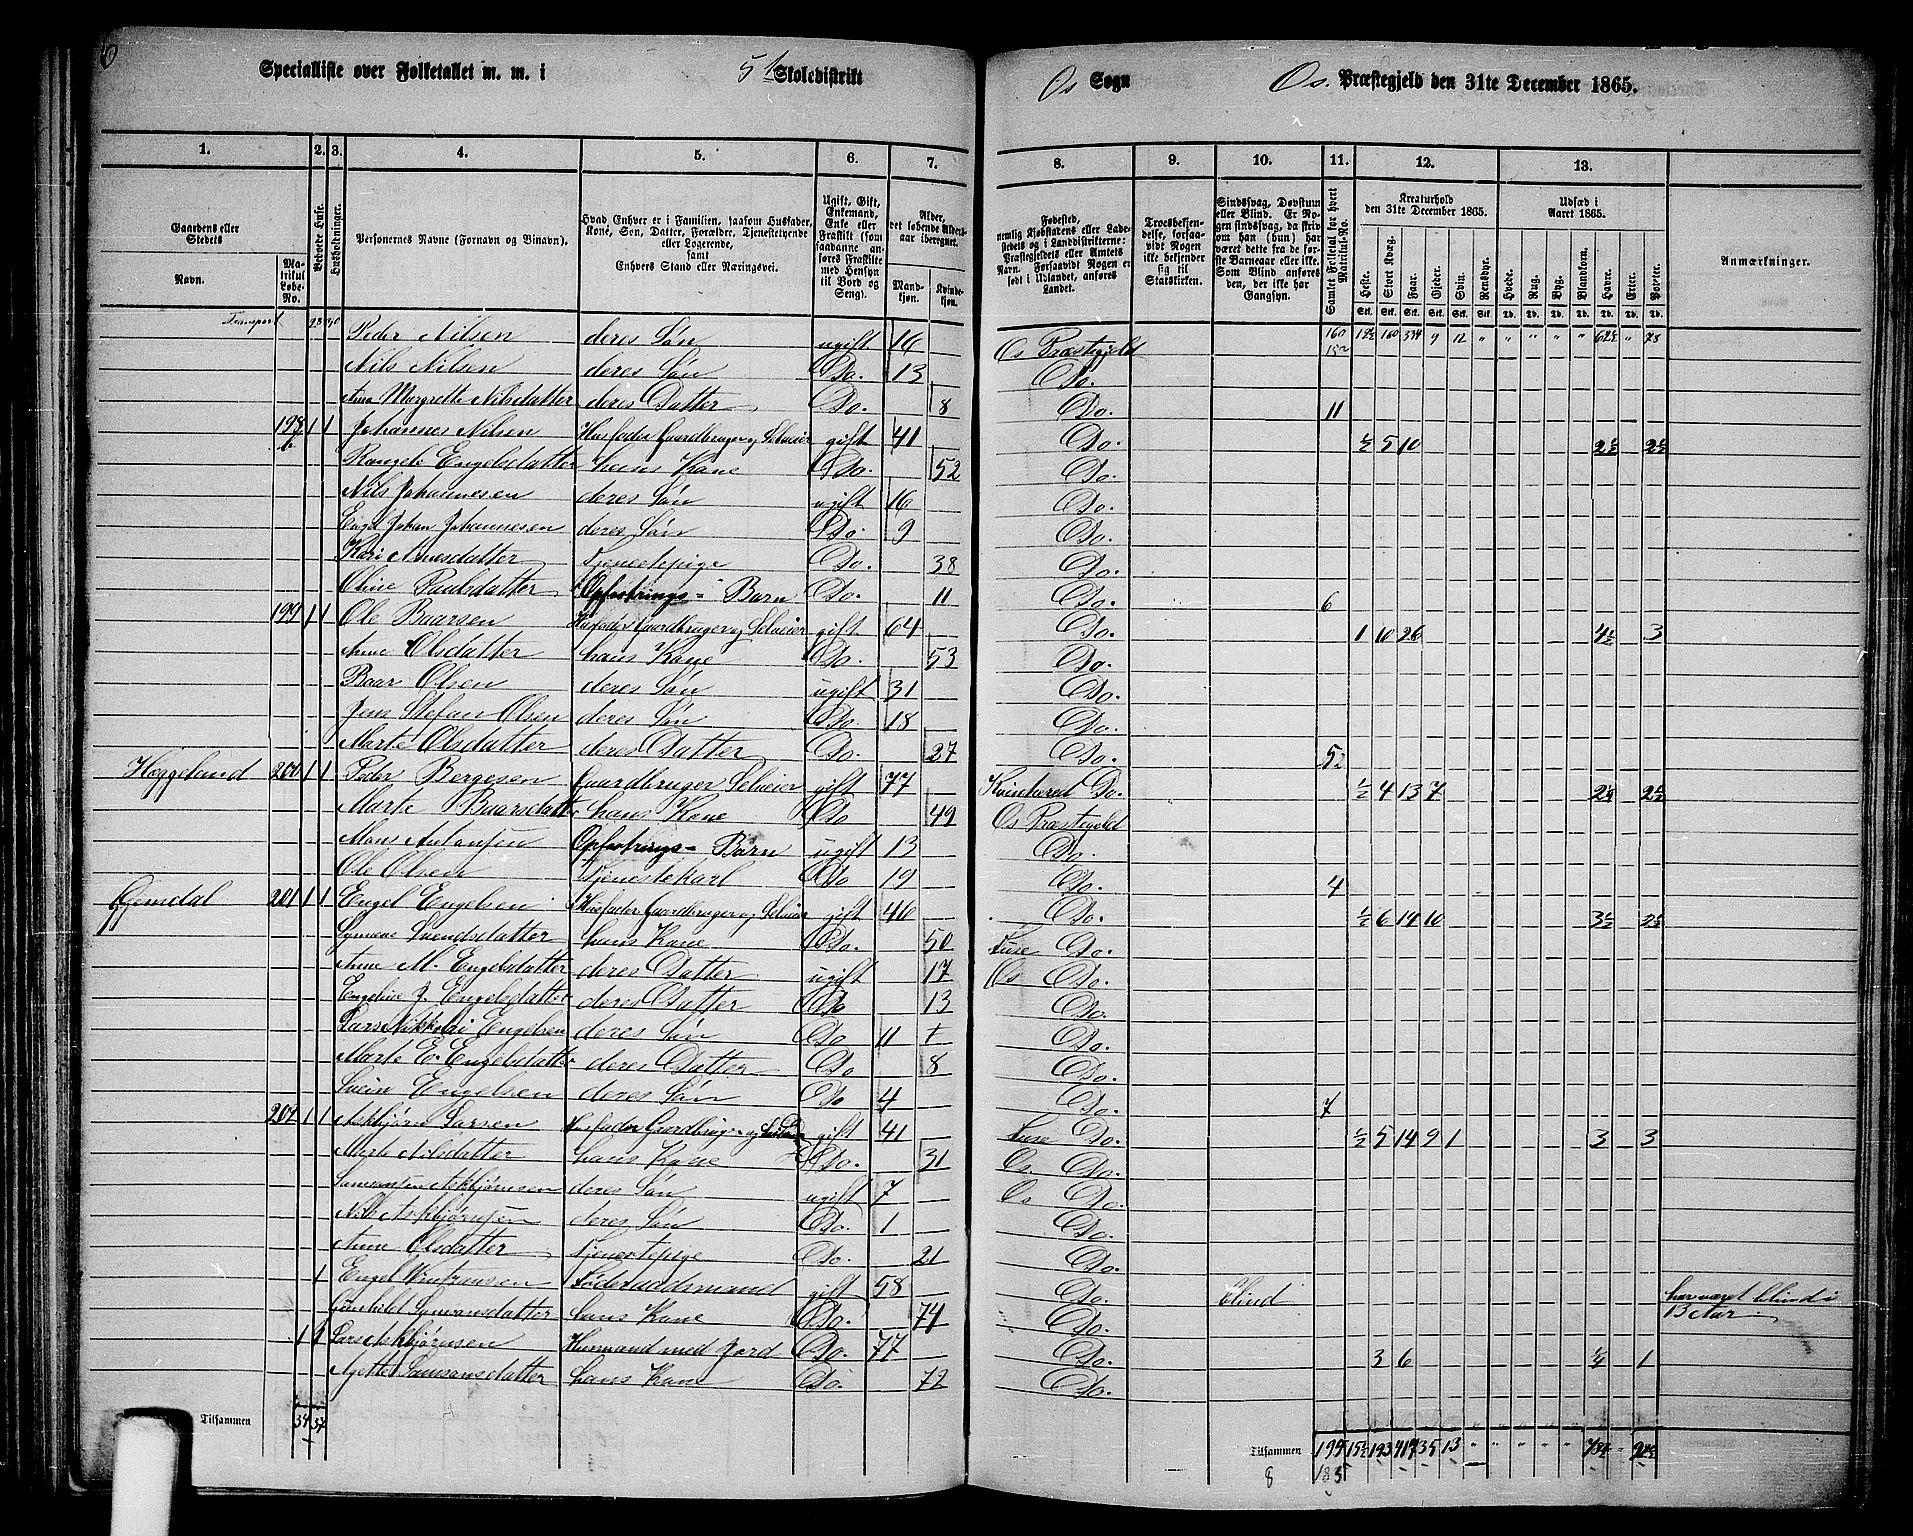 Specialliste over Folketallet m. m. i 5te Skoledistrikt Os Sogn Os Præstegjeld den 31te December 1865.
1. 2. 3. 4. 5. 6. 7. 8. 9. 10. 11. 12. 13.
Gaardens eller Stedets
Navn.
Matrikul Løbe-No.
Beboede Huse.
Husholdninger.
Personernes Navne (Fornavn og Binavn).
Hvad Enhver er i Familien, saasom Husfader, Kone, Søn, Datter, Forældre, Tjenestetyende eller Logerende, samt Enhvers Stand eller Næringsvei.
Ugift, Gift, Enkemand, Enke eller Fraskilt (som saadanne anføres Fraskilte med Hensyn til Bord og Seng).
Alder, det løbende Alders-aar iberegnet.
Mandkjøn. Kvindekjøn.
Fødested, nemlig Kjøbstadens eller Ladestedets og i Landdistrikterne: Præstegjeldets eller Amtets Navn. Forsaavidt Nogen er født i Udlandet, anføres Landet.
Troesbekjendelse, forsaavidt Nogen ikke bekjender sig til Statskirken.
Sindssvag, Døvstum eller Blind. Er Nogen sindssvag, da skrives om han (hun) har været dette fra de første Barneaar eller ikke. Som Blind anføres den, der ikke har Gangsyn.
Samlet Folketal for hvert Matrikul-No.
Kreaturhold den 31te December 1865.
Heste. Stort Kvæg. Faar. Gjeder. Svin. Rensdyr.
Udsæd i Aaret 1865.
Hvede. Rug. Byg. Blandkorn. Havre. Erter. Poteter.
Anmærkninger.
Transport Peder Nilsen deres Søn ugift 16 Os Præstegjeld 160 12½ 160 334 9 12 " " " " " 62½ " 78
Nils Nilsen deres Søn Do. 13 Do.
Ana Margrethe Nilsdatter deres Datter Do. 8 Do. 11
198 b 1 1 Johannes Nilsen Husfader Gaardbruger og Selveier gift 41 Do. ½ 5 10 2½ 2½
Rangele Engelsdatter hans Kone Do. 52 Do.
Nils Johannesen deres Søn ugift 16 Do.
Engel Johan Johannesen deres Søn Do. 9 Do.
Kari Monsdatter Tjenestepige Do. 38 Do.
Oline Paulsdatter Opfostrings- Barn Do. 11 Do. 6
199 1 1 Ole Baarsen Husfader Gaardbruger og Selveier gift 64 Do. 1 10 26 4½ 3
Anne Olsdatter hans Kone Do. 53 Do.
Baar Olsen deres Søn ugift 31 Do.
Jens Stefan Olsen deres Søn Do. 18 Do.
Marte Olsdatter deres Datter Do. 27 Do. 5
Heggelund 200 1 1 Peder Bergesen Gaardbruger Selveier gift 77 Kvinherred Do. ½ 4 13 7 2½
Marte Baarsdatter hans Kone Do 49 Os Præstegjeld
Mons Antonsen Opfostrings- Barn ugift 13 Do.
Ole Olsen Tjenestekarl Do 19 Do. 4
Gjemdal 201 1 1 Engel Engelsen Husfader Gaardbruger og Selveier gift 46 Do. ½ 6 14 10 3½ 2½
Synneve Svendsdatter hans Kone Do. 50 Fuse Do.
Anne M. Engelsdatter deres Datter ugift 17 Os Do.
Engeline J. Engelsdatter deres Datter Do 13 Do.
Lars Nikkolai Engelsen deres Søn Do 11 Do.
Marte E. Engelsdatter deres Datter Do 8 Do.
Svein Engelsen deres Søn Do 4 Do. 7
202 1 1 Askbjørn Larsen Husfader Gaardbruger gift 41 Fuse Do. ½ 5 14 9 1 3 3
Marte Nilsdatter hans Kone Do. 31 Os. Do.
Samansen Askbjørnsen deres Søn ugift 7 Os Do.
Nils Askbjørnsen deres Søn Do. 1 Do.
Anne Olsdatter Tjenestepige Do. 21 Do.
1 Engel Føderaadsmand gift 58 Do. Blind har været blind i
Gunhild Samsonsdatter hans Kone Do. 74 Do. 13 Aar
1 1 Lars Askbjørnsen Husmand med Jord Do. 77 Do. 3 6 ¼ 1
Samsonsdatter hans Kone Do. 72 Do.
Tilsammen 34 37 Tilsammen 195 15½ 193 417 35 13 " " " "
8 185